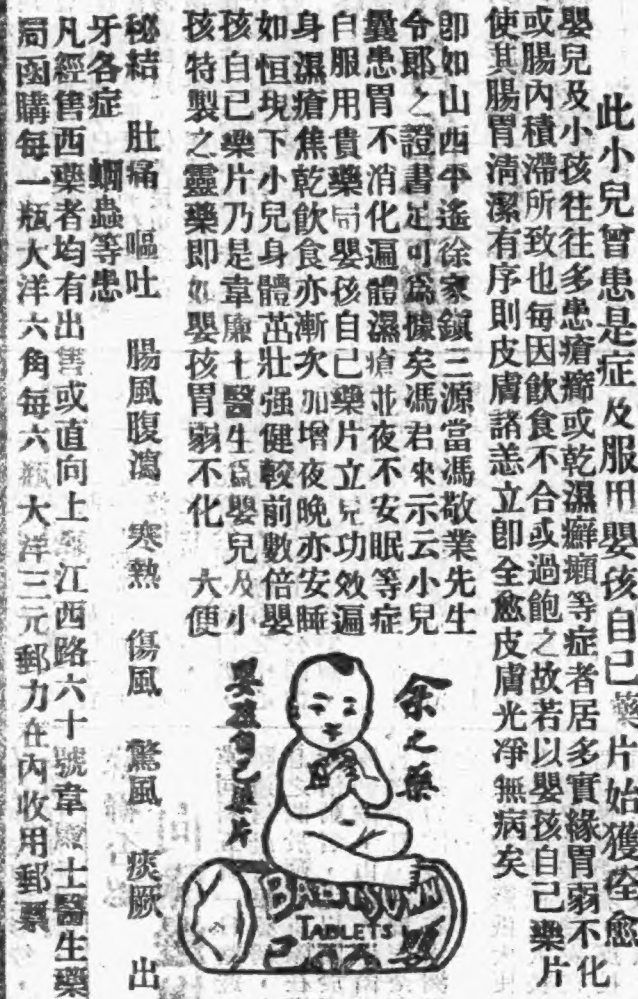 此小兒曾患是症及服用嬰孩自己藥片始獲痊愈
嬰兒及小孩往往多患瘡癤或乾濕癬癩等症者居多實緣胃弱不化
或腸內積滯所致也每因飲食不合或過飽之故若以嬰孩自己藥片
使其腸胃清潔有序則皮膚諸恙立卽全愈皮膚光凈無病矣
卽如山西平遙徐家鎮三源當馮敬業先生
令郎之證書足可爲據矣馮君來示云小兒
曩患胃不消化遍體濕瘡並夜不安眠等症
自服用貴藥局嬰孩自己藥片立見功效遍
身濕瘡焦乾飲食亦漸次加增夜晚亦安睡
如恒現下小兒身體茁壯强健較前數倍嬰
孩自己藥片乃是韋廉士醫生爲嬰兒及小
孩特製之靈藥卽如嬰孩胃弱不化 大便
秘結 肚痛 嘔吐 腸風腹瀉 寒熱 傷風 驚風 痰厥 出
牙各症 蛔蟲等患
凡經售西藥者均有出售或直向上海江西路六十號韋廉士醫生藥
局函購每一瓶大洋六角每六瓶大洋三元郵力在內收用郵票
余之藥
嬰孩自己藥片
BABY'S OWN
TABLETS
嬰
己